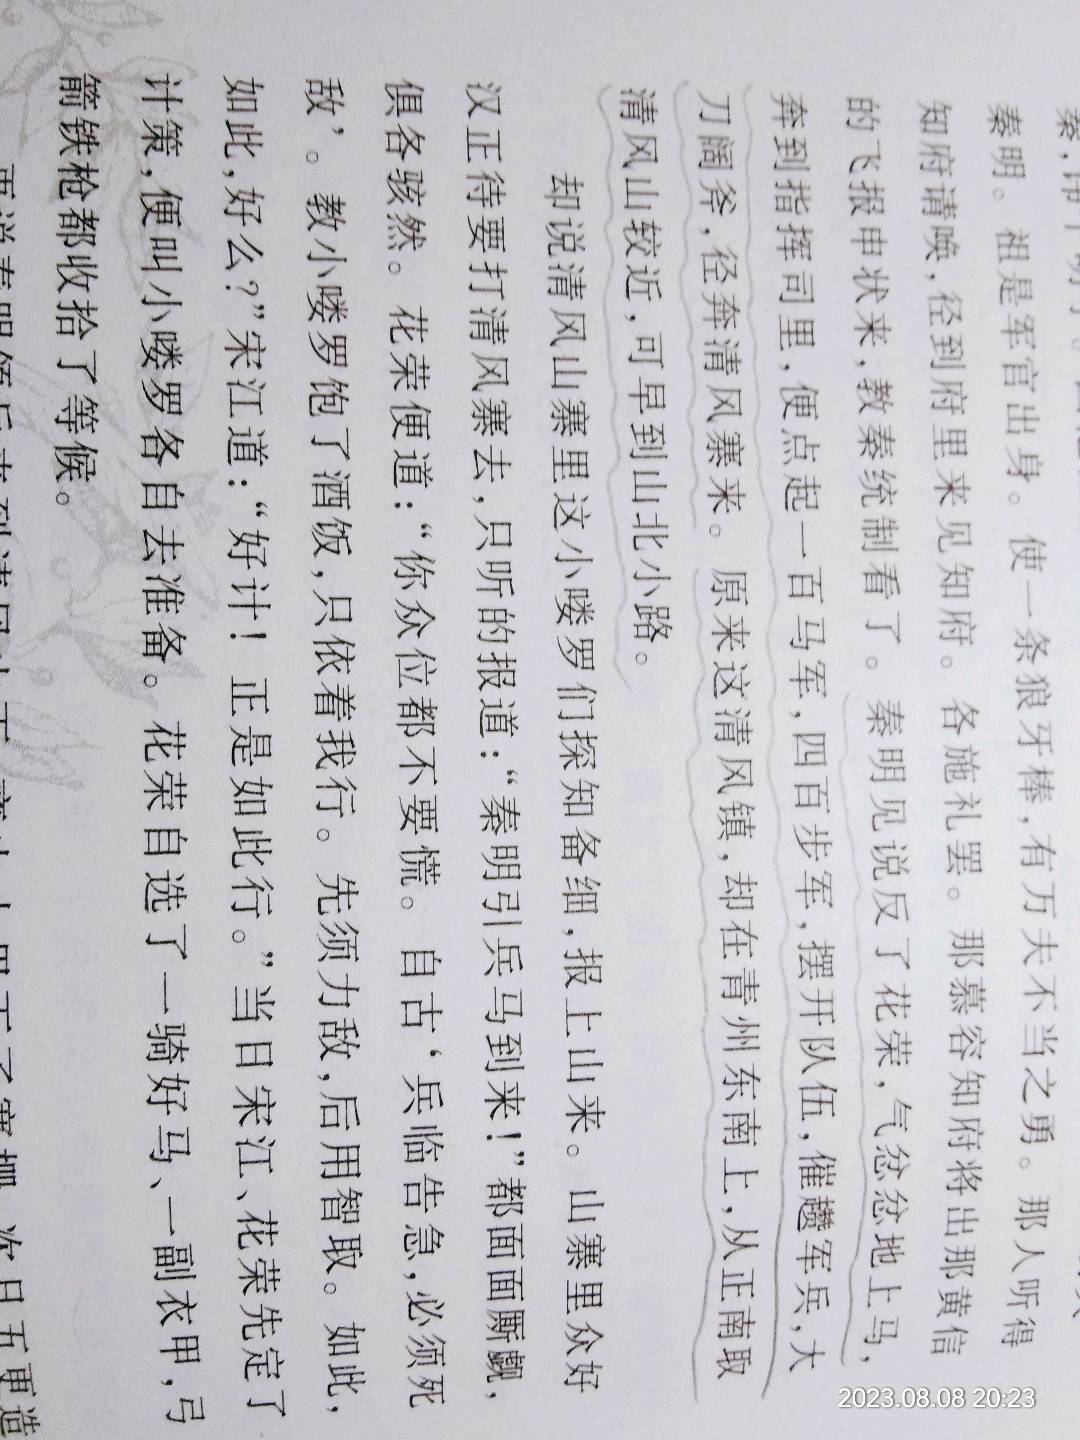 秦明。祖是军官出身。使一条狼牙棒，有万夫不当之勇。那人听得
知府请唤，径到府里来见知府。各施礼罢。那慕容知府将出那黄信
的飞报申状来，教秦统制看了。秦明见说反了花荣，气忿忿地上马，
奔到指挥司里，便点起一百马军，四百步军，摆开队伍，催趱军兵，大
刀阔斧，径奔清风寨来。原来这清风镇，却在青州东南上，从正南取
清风山较近，可早到山北小路。
却说清风山寨里这小喽罗们探知备细，报上山来。山寨里众好
汉正待要打清风寨去，只听的报道：“秦明引兵马到来！”都面面厮觑，
俱各骇然。花荣便道：“你众位都不要慌。自古‘兵临告急，必须死
敌’。教小喽罗饱了酒饭，只依着我行。先须力敌，后用智取。如此，
如此，好么？”宋江道：“好计！正是如此行。”当日宋江、花荣先定了
计策，便叫小喽罗各自去准备。花荣自选了一骑好马、一副衣甲，弓
箭铁枪都收拾了等候。
次日五更造
2023.08.08 20:23